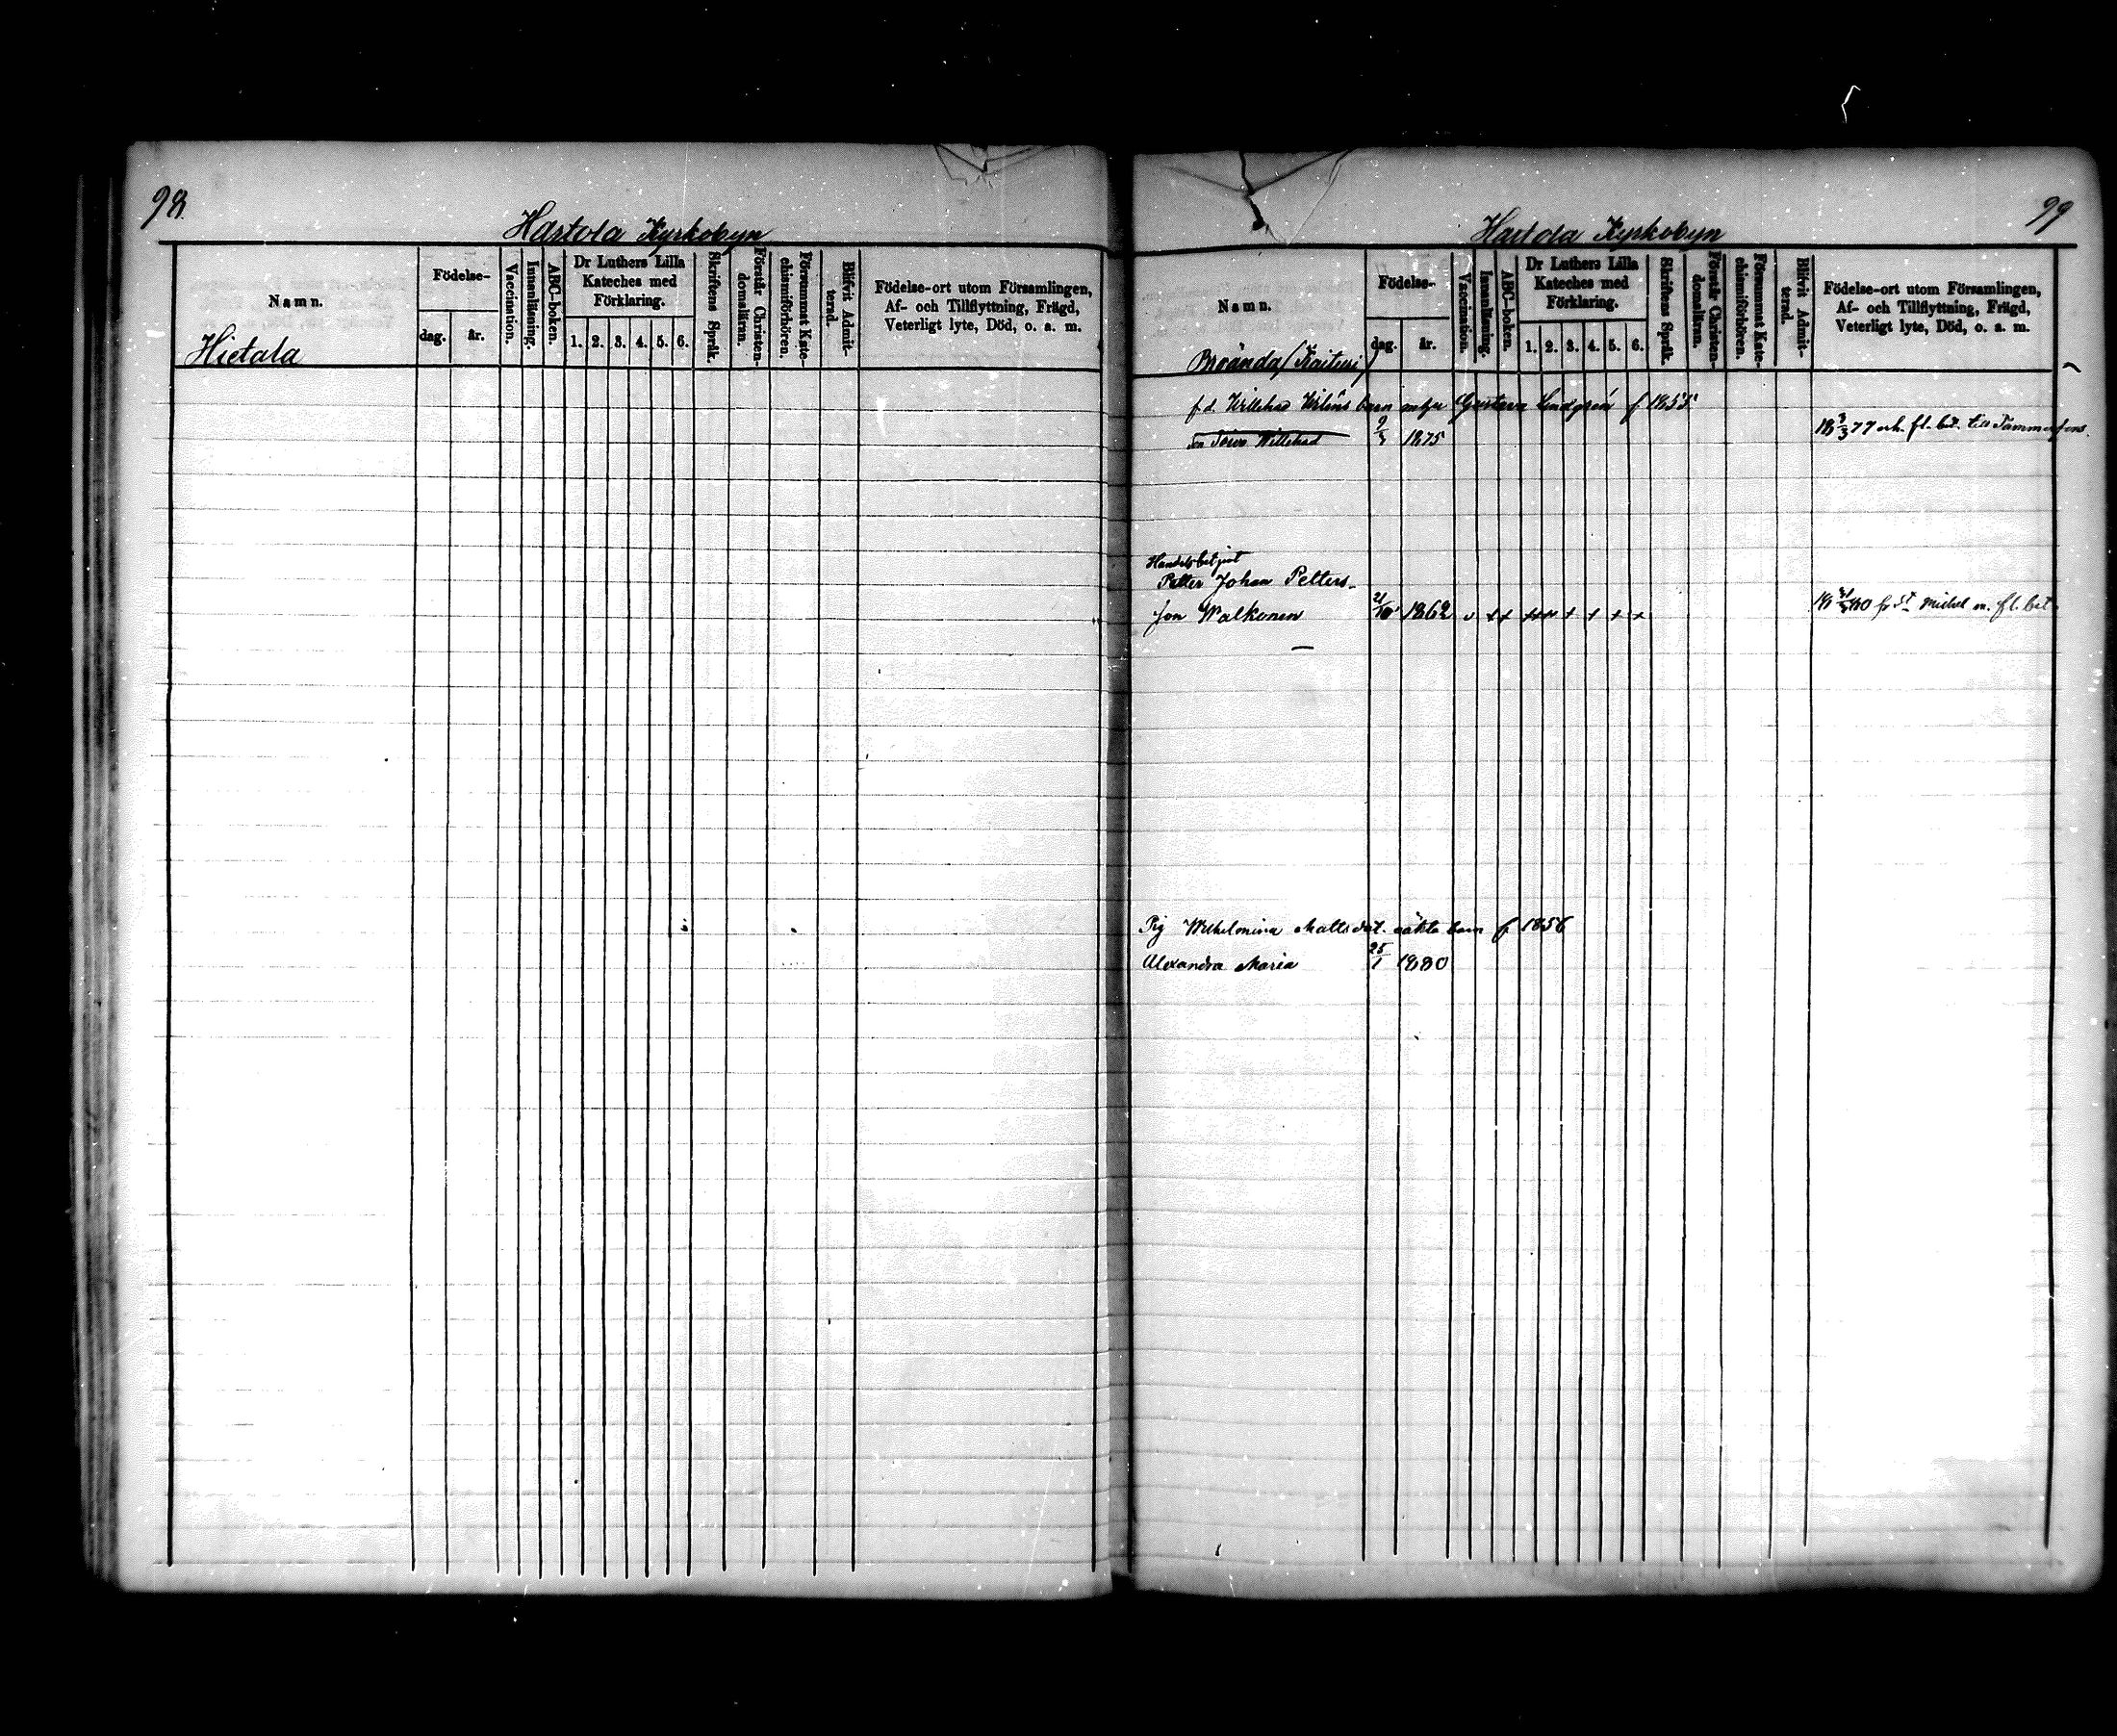 98.
Hartola Kyrkobyn
Namn.
Födelse-
dag.
år.
Vaccination.
Innanläsning.
ABC-boken.
Dr Luthers Lilla
Kateches med
Förklaring.
1. 2. 3. 4. 5. 6.
Skriftens Språk.
Förstår Christen-
domsläran.
Försummat Kate-
chismiförhören.
Blifvit Admit-
terad.
Födelse-ort utom Församlingen,
Af- och Tillflyttning, Frägd,
Veterligt lyte, Död, o. a. m.
Hietala
99
Hartola Kyrkobyn
Namn.
Födelse-
dag.
år.
Vaccination.
Innanläsning.
ABC-boken.
Dr Luthers Lilla
Kateches med
Förklaring.
1. 2. 3. 4. 5. 6.
Skriftens Språk.
Förstår Christen-
domsläran.
Försummat Kate-
chismiförhören.
Blifvit Admit-
terad.
Födelse-ort utom Församlingen,
Af- och Tillflyttning, Frägd,
Veterligt lyte, Död, o. a. m.
f.d. Willehad barn Gustava Lindgrén f 1855
son Toivo Willehad 9/3 1875 18 3/3 77 erh. fl. bet. till Tammerfors.
Handelsbetjent
Petter Johan Petters-
son Walkonen 21/10 1862 v ++ +++ + + + + fr St Michel m. fl. bet.
Pig Wilhelmina Mattsdot. oäkta barn f 1856
Alexandra Maria 25/1 1880